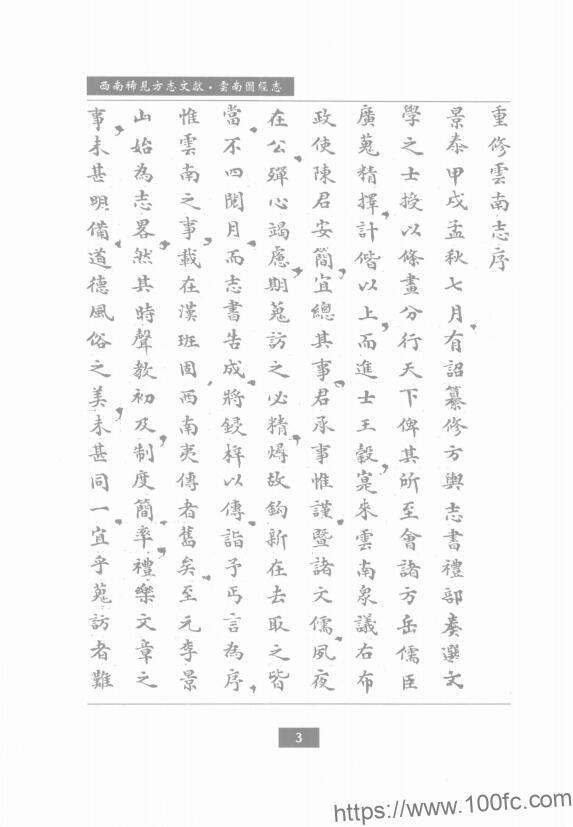 西南稀見方志文獻·雲南圖經志
重修雲南志序
景泰甲戌孟秋七月有詔纂修方輿志書禮部奏選文
學之士授以條畫分行天下俾其所至會諸方岳儒臣
廣蒐精擇計偕以上而進士王穀寔來雲南衆議右布
政使陳君安簡宜總其事君承事惟謹暨諸文儒夙夜
在公殫心竭慮期蒐訪之必精燖故鈎新在去取之皆
當不四閱月而志書告成將鋟梓以傳詣予丐言為序
惟雲南之事載在漢班固西南夷傳者舊矣至元李景
山始為志畧然其時聲教初及制度簡率禮樂文章之
事未甚明備道德風俗之美未甚同一宜乎蒐訪者難
3
https://www.100fc.com